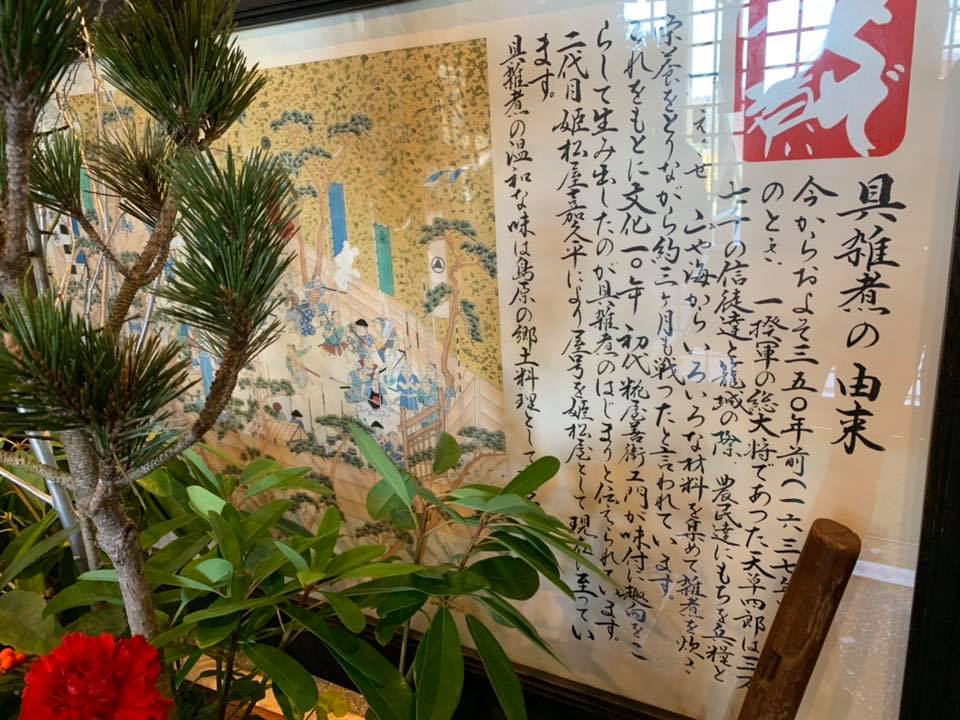 ぐぞうに
具雑煮の由来
今からおよそ三五〇年前(一六三七年
のとき、一揆軍の総大将であった天草四郎は三万
七千の信徒達と籠城の際、農民達にもちを兵糧と
えさせ、山や海からいろいろな材料を集めて雑煮を炊き
栄養をとりながら約三ヶ月も戦ったと言われています。
これをもとに文化一〇年、初代糀屋善衛ェ門が味付に趣向をこ
らして生み出したのが具雑煮のはじまりと伝えられています。
二代目姫松屋喜久平により屋号を姫松屋として現在に至ってい
ます。
具雑煮の温和な味は島原の郷土料理として